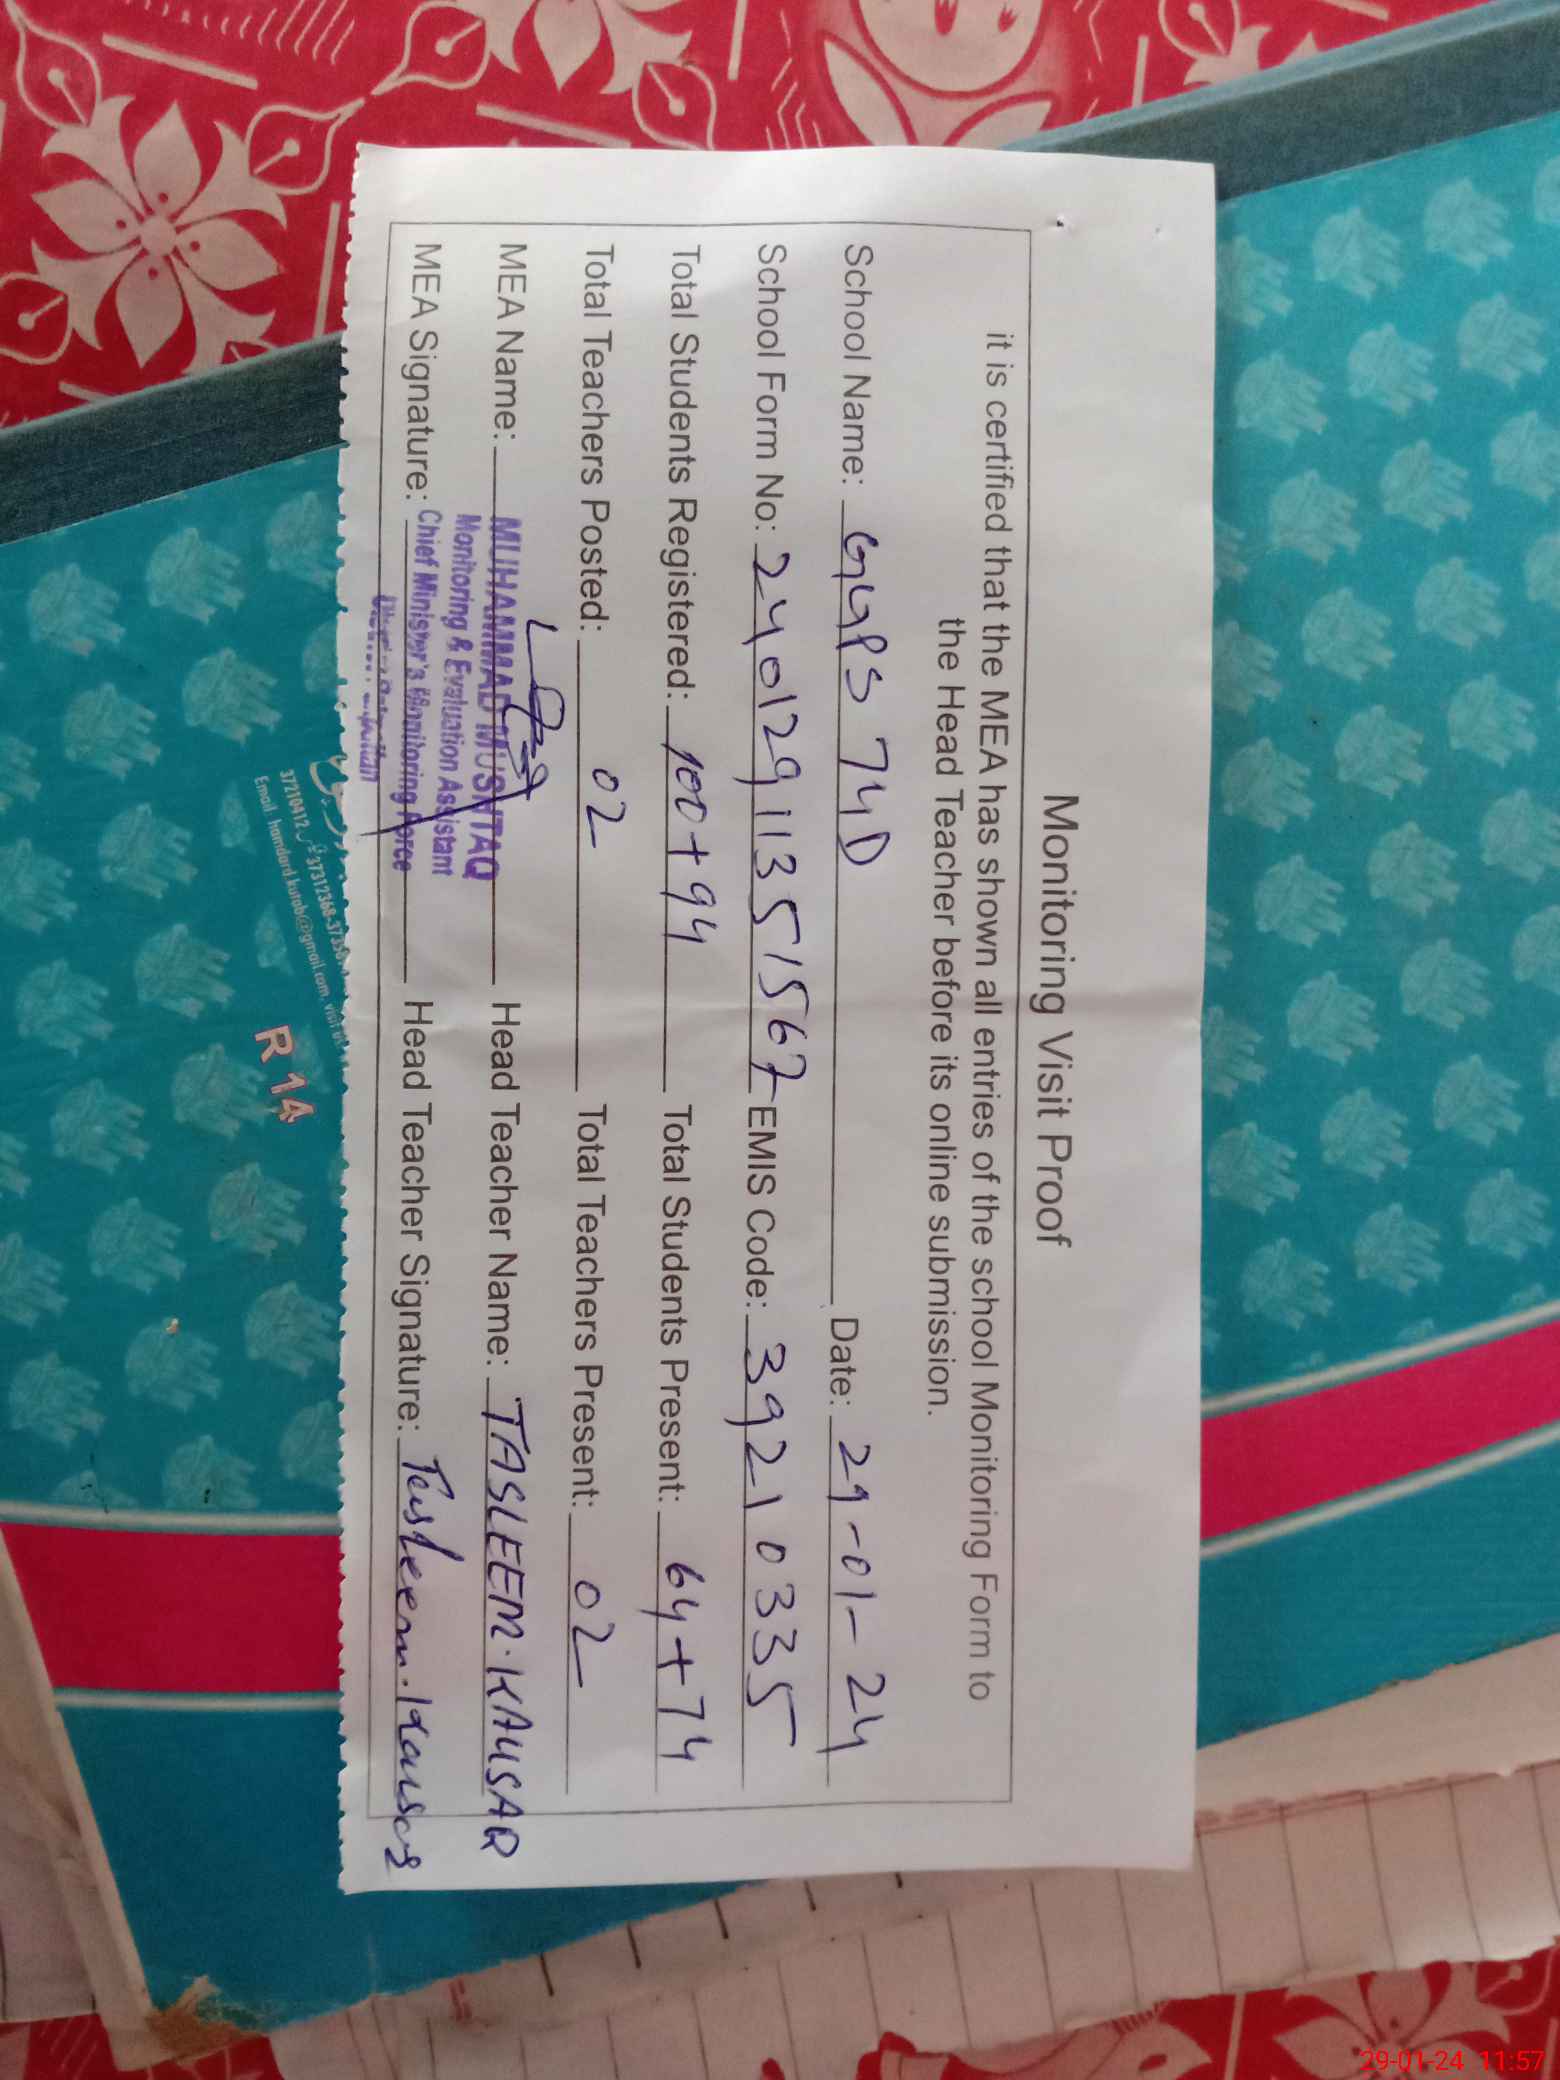 Monitoring Visit Proof
it is certified that the MEA has shown all entries of the school Monitoring Form to
the Head Teacher before its online submission.
School Name: GGPS 74D Date: 29-01-24
School Form No: 24012911351567 EMIS Code: 39210335
Total Students Registered: 100+94 Total Students Present: 64+74
Total Teachers Posted: 02 Total Teachers Present: 02
MEA Name: MUHAMMAD MUSHTAQ Head Teacher Name: TASLEEM.KAUSAR
Monitoring & Evaluation Assistant
MEA Signature: Chief Minister's Monitoring Force Head Teacher Signature: Tasleem.Kausar
37210412
Email hamdard kutab@gmail.com, visit
R 14
29-01-24 11:57